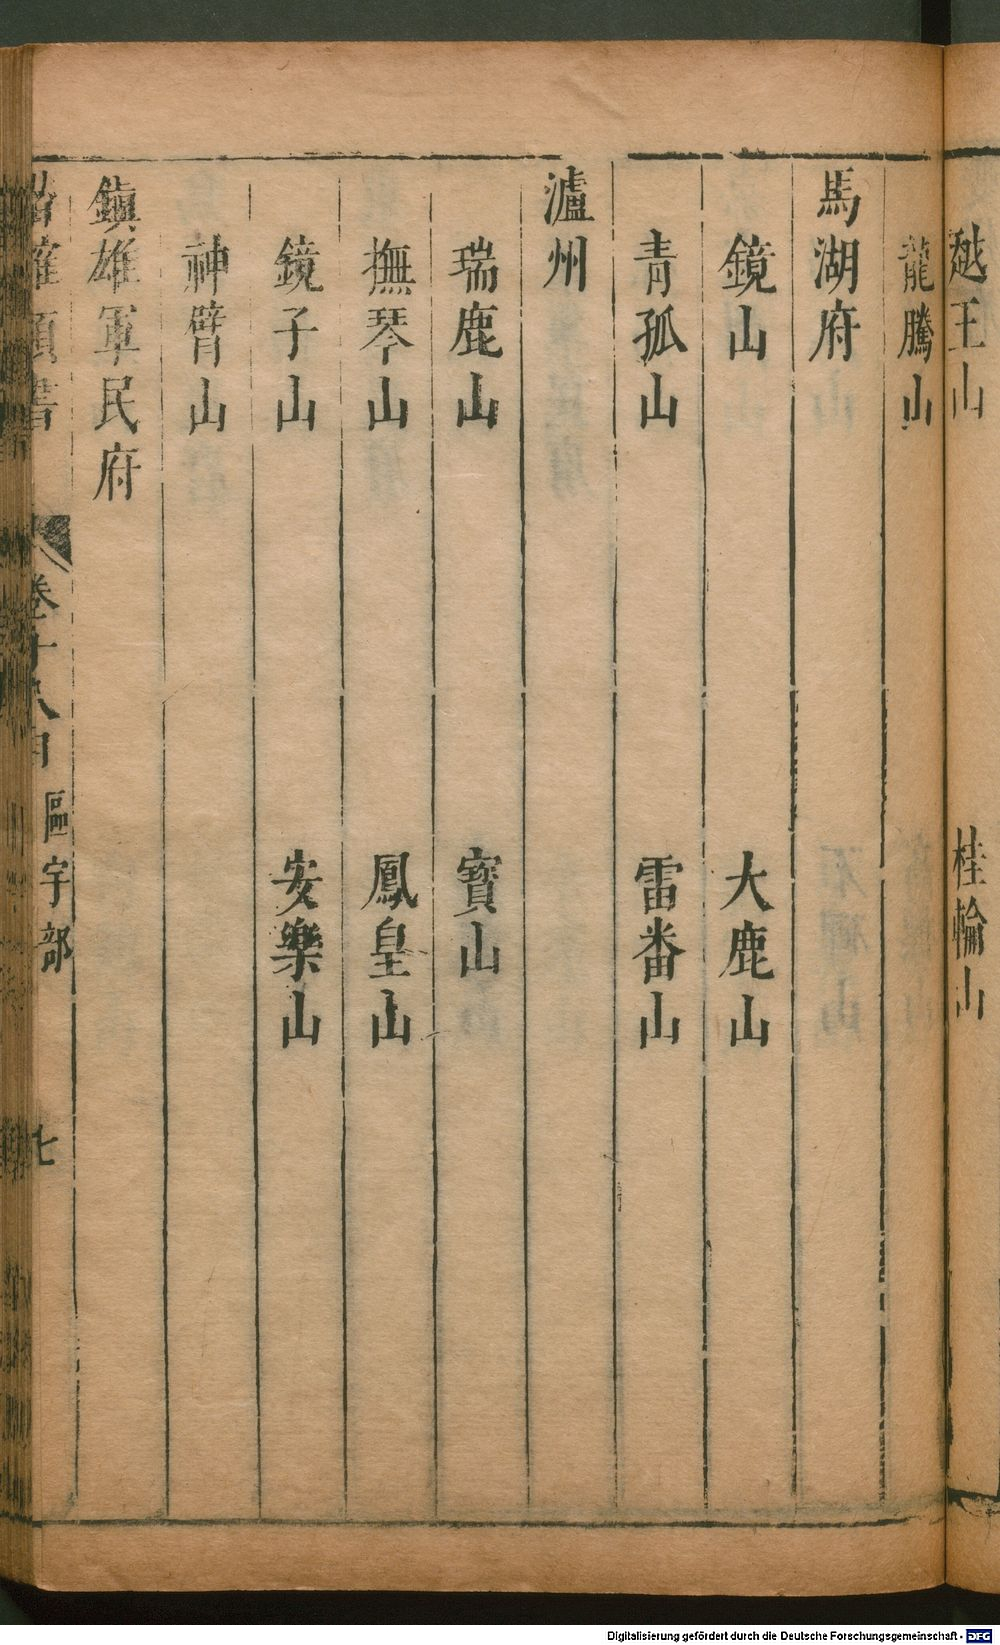 越王山 桂輪山
龍騰山
馬湖府
鏡山 大鹿山
青孤山 雷番山
瀘州
瑞鹿山 寳山
撫琴山 鳳皇山
鏡子山 安樂山
神臂山
鎮雄軍民府
卷十八目 區宇部 七
Digitalisierung gefördert durch die Deutsche Forschungsgemeinschaft - DFG